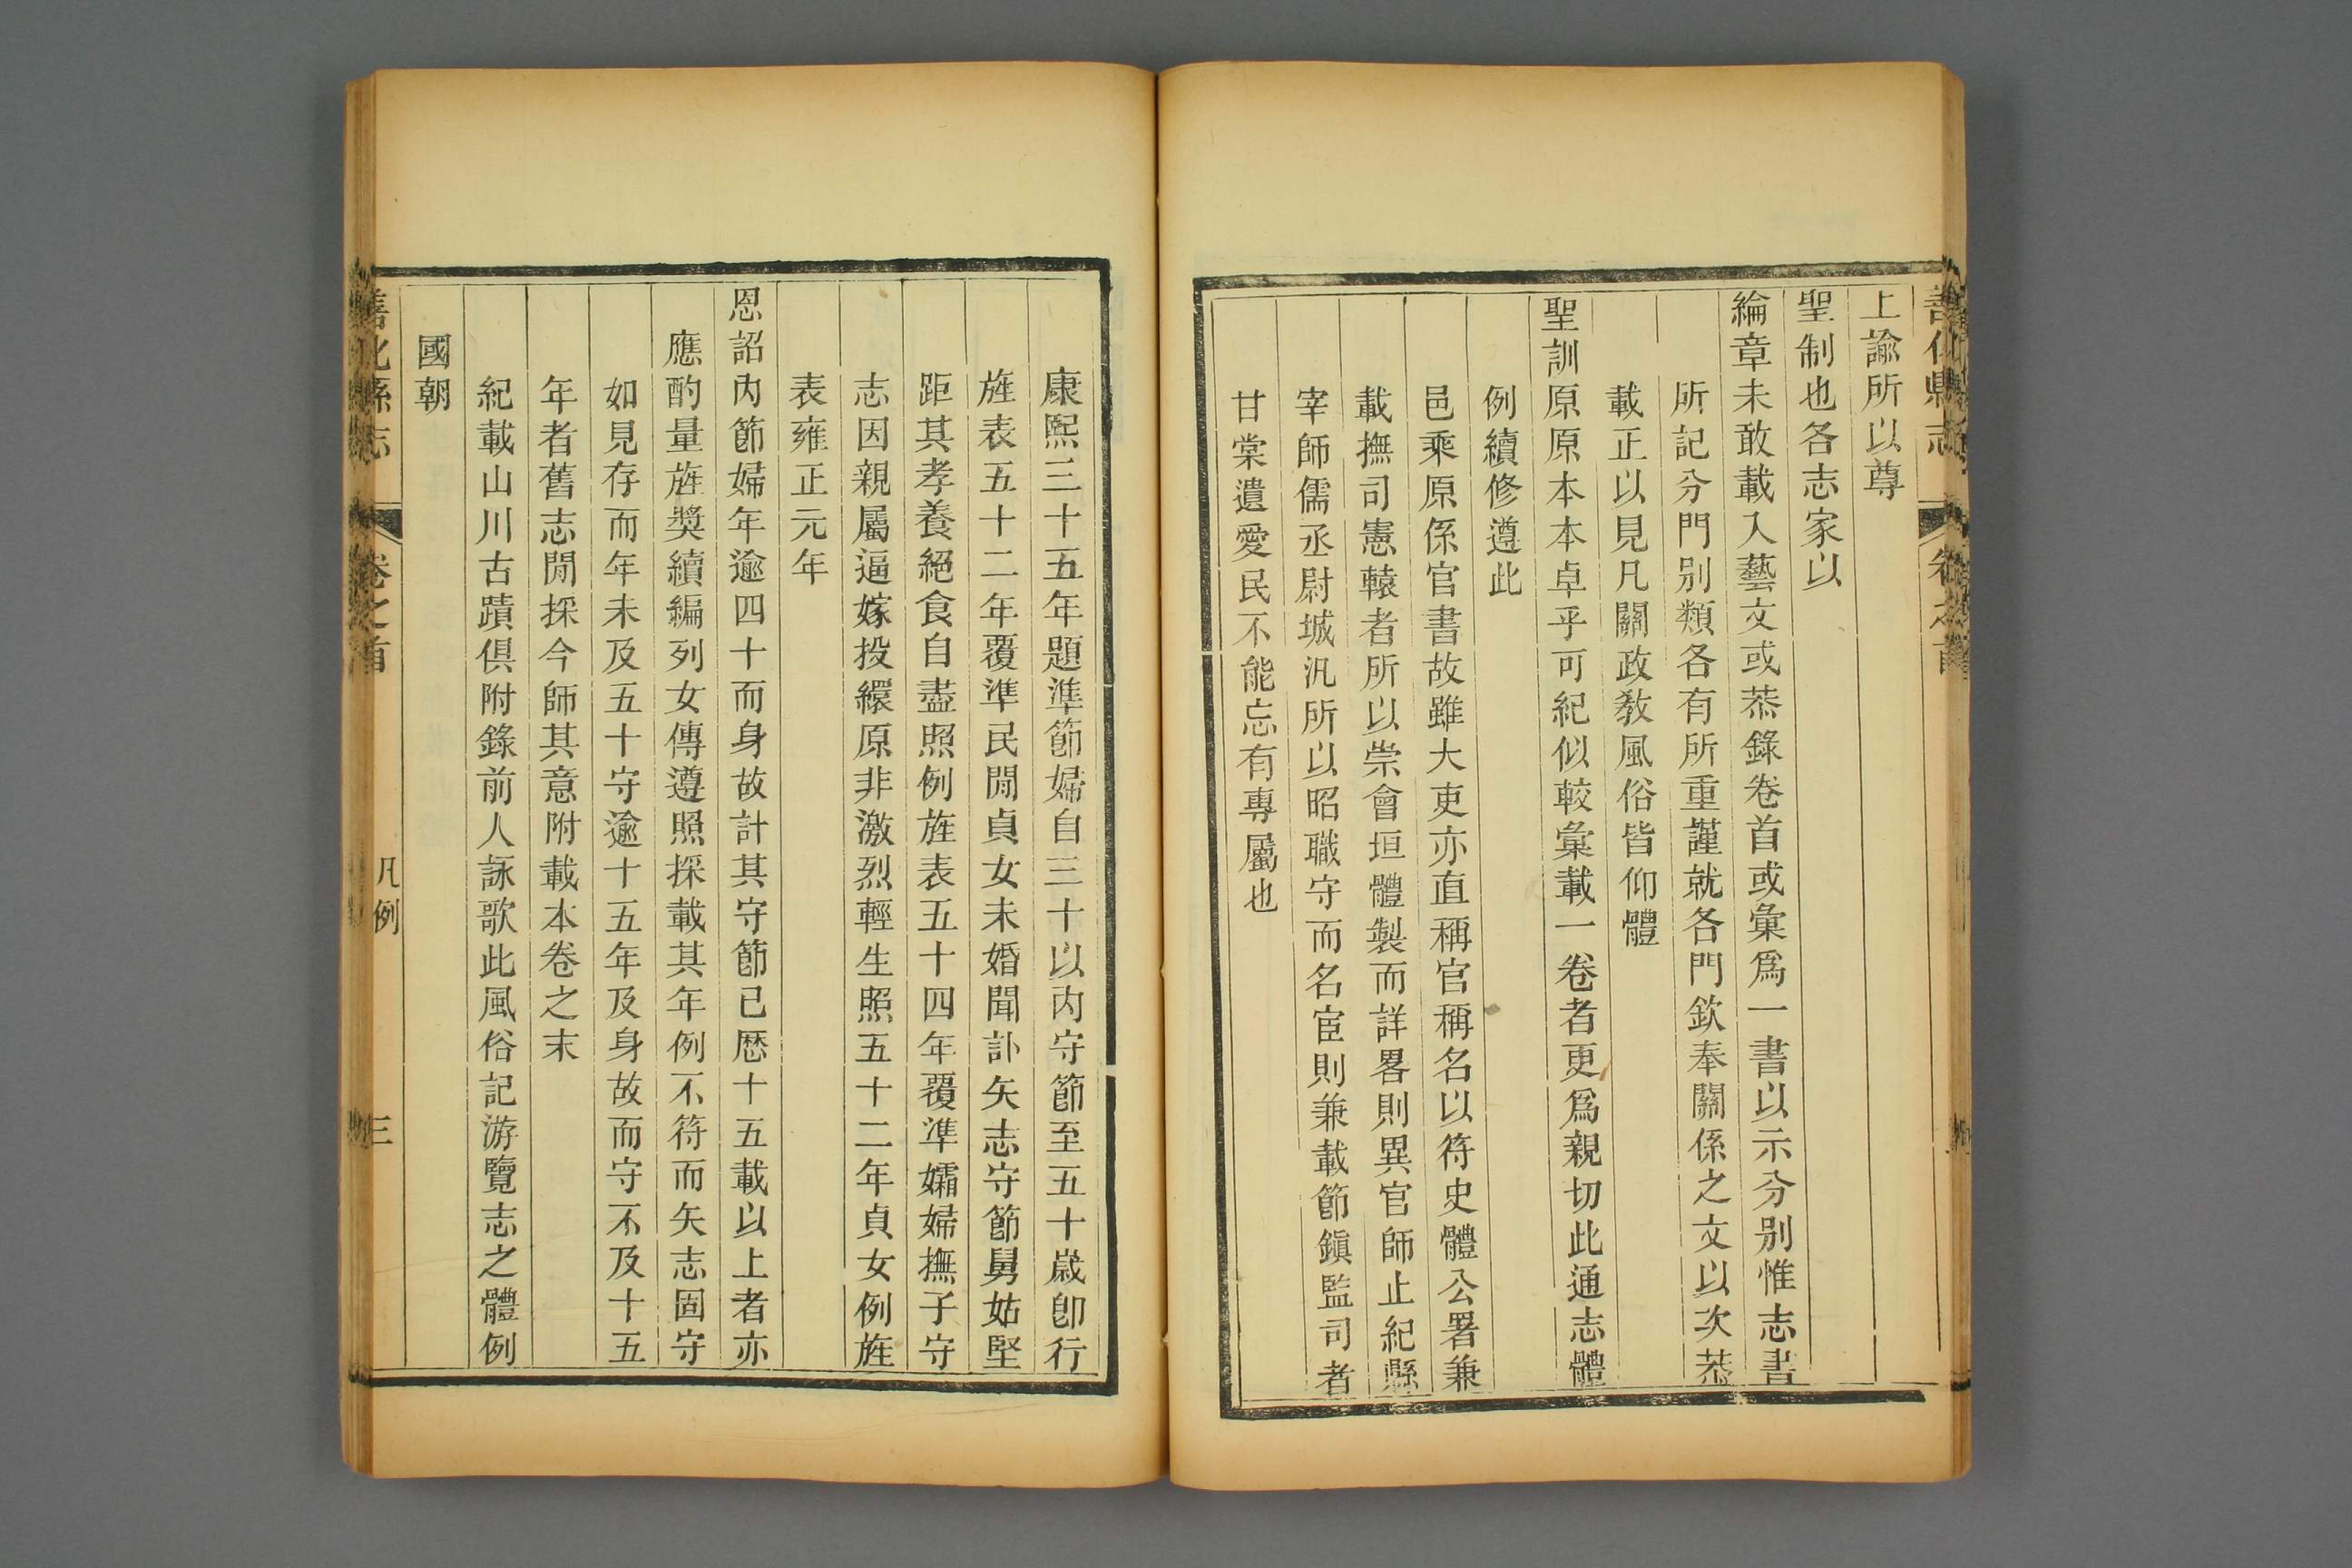 善化縣志
卷之首
上諭所以尊
聖制也各志家以
綸章未敢載入藝文或恭錄卷首或彙爲一書以示分別惟志書
所記分門別類各有所重謹就各門欽奉關係之文以次恭
載正以見凡關政敎風俗皆仰體
聖訓原原本本卓乎可紀似較彙載一卷者更爲親切此通志體
例續修遵此
邑乘原係官書故雖大吏亦直稱官稱名以符史體公署兼
載撫司憲轅者所以崇會垣體製而詳畧則異官師止紀縣
宰師儒丞尉城汛所以昭職守而名宦則兼載節鎭監司者
甘棠遺愛民不能忘有專屬也
康熙三十五年題準節婦自三十以內守節至五十歲卽行
旌表五十二年覆準民閒貞女未婚聞訃矢志守節舅姑堅
距其孝養絕食自盡照例旌表五十四年覆準孀婦撫子守
志因親屬逼嫁投繯原非激烈輕生照五十二年貞女例旌
表雍正元年
恩詔內節婦年逾四十而身故計其守節已歷十五載以上者亦
應酌量旌獎續編列女傳遵照採載其年例不符而矢志固守
如見存而年未及五十守逾十五年及身故而守不及十五
年者舊志閒採今師其意附載本卷之末
紀載山川古蹟俱附錄前人詠歌此風俗記游覽志之體例
國朝
善化縣志
卷之首
凡例
三